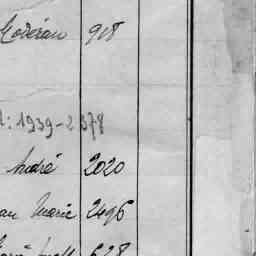 Moderan 918
: 1939-2378
André 2020
an Marie 2496
628